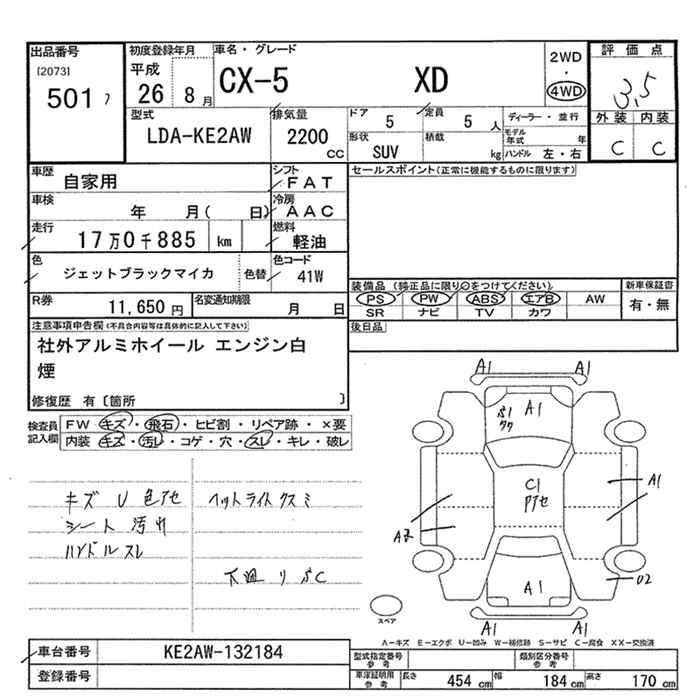 出品番号
[2073]
501 フ
初度登録年月
平成
26 8月
車名・グレード
CX-5 XD
2WD
・
4WD
評価点
3,5
外装 内装
C C
型式
LDA-KE2AW
排気量
2200
cc
ドア
5
定員
5 人
形状
SUV
積載
kg
ディーラー・並行
モデル年式 年
ハンドル 左・右
車歴
自家用
シフト
FAT
車検
年 月( 日)
冷房
AAC
走行
17万0千885 km
燃料
軽油
色
ジェットブラックマイカ
色替
色コード
41W
R券
11,650円
名変通知期限
月 日
セールスポイント(正常に機能するものに限ります)
装備品 (純正品に限り○をつけてください)
PS PW ABS エアB AW
SR ナビ TV カワ
新車保証書
有・無
後日品
注意事項申告欄(不具合内容等は具体的に記入して下さい)
社外アルミホイール エンジン白
煙
修復歴 有〔箇所 〕
検査員
記入欄
FW キズ・飛石・ヒビ割・リペア跡・×要
内装 キズ・汚レ・コゲ・穴・スレ・キレ・破レ
キズ U 色アセ
シート 汚れ
ハンドルスレ
ヘッドライトクスミ
下廻り
A1 A1
A1
C1
アセ
A1
A2
U2
A1
A1 A1
スペア
A-キズ E-エクボ U-凹み W-補修跡 S-サビ C-腐食 XX-交換済
車台番号
KE2AW-132184
登録番号
型式指定番号
参考
類別区分番号
参考
車庫証明用
参考
長さ 454 cm
幅 184 cm
高さ 170 cm